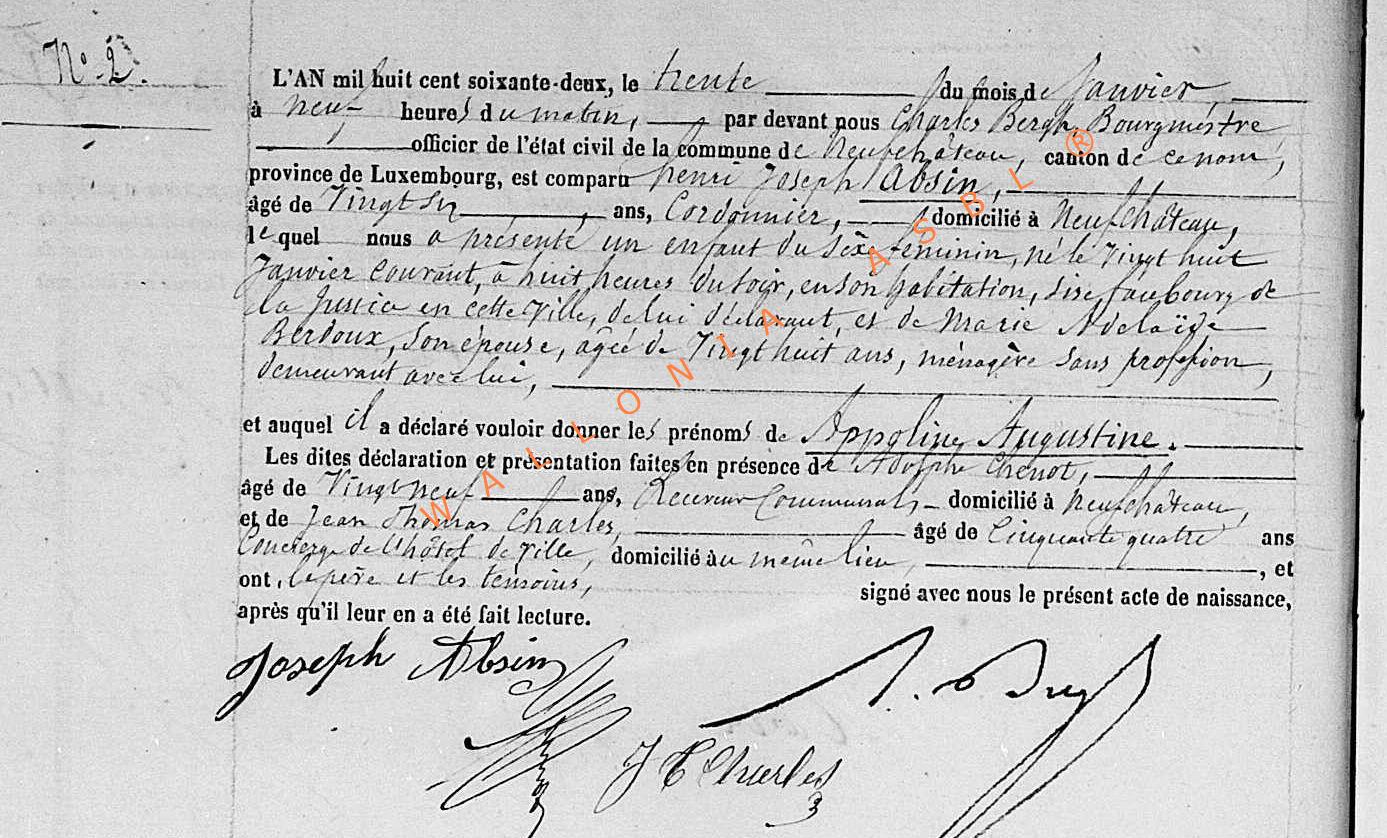 N° 2.
L'AN mil huit cent soixante-deux, le trente du mois de Janvier,
à neuf heures du matin, par devant nous Charles Bergh, Bourgmestre
officier de l'état civil de la commune de Neufchâteau, canton de ce nom,
province de Luxembourg, est comparu henri Joseph Absin,
âgé de Vingt six ans, Cordonnier, domicilié à Neufchâteau,
lequel nous a présenté un enfant du sèxe féminin, né le Vingt huit
Janvier Courant, à huit heures du soir, en son habitation, sise faubourg de
la Justice en cette Ville, de lui déclarant, et de Marie Adelaïde
Berdoux, Son épouse, agée de Vingt huit ans, ménagère sans profession
demeurant avec lui,
et auquel il a déclaré vouloir donner les prénoms de Appoline Augustine.
Les dites déclaration et présentation faites en présence de Adolphe Chenot,
âgé de Vingt neuf ans, Receveur Communal, domicilié à Neufchâteau,
et de Jean Thomas Charles, âgé de Cinquante quatre ans
Concierge de l'hôtel de Ville, domicilié au même lieu, et
ont, le père et les témoins, signé avec nous le présent acte de naissance,
après qu'il leur en a été fait lecture.
Joseph Absin
J T Charles
WALLONIA ASBL ®